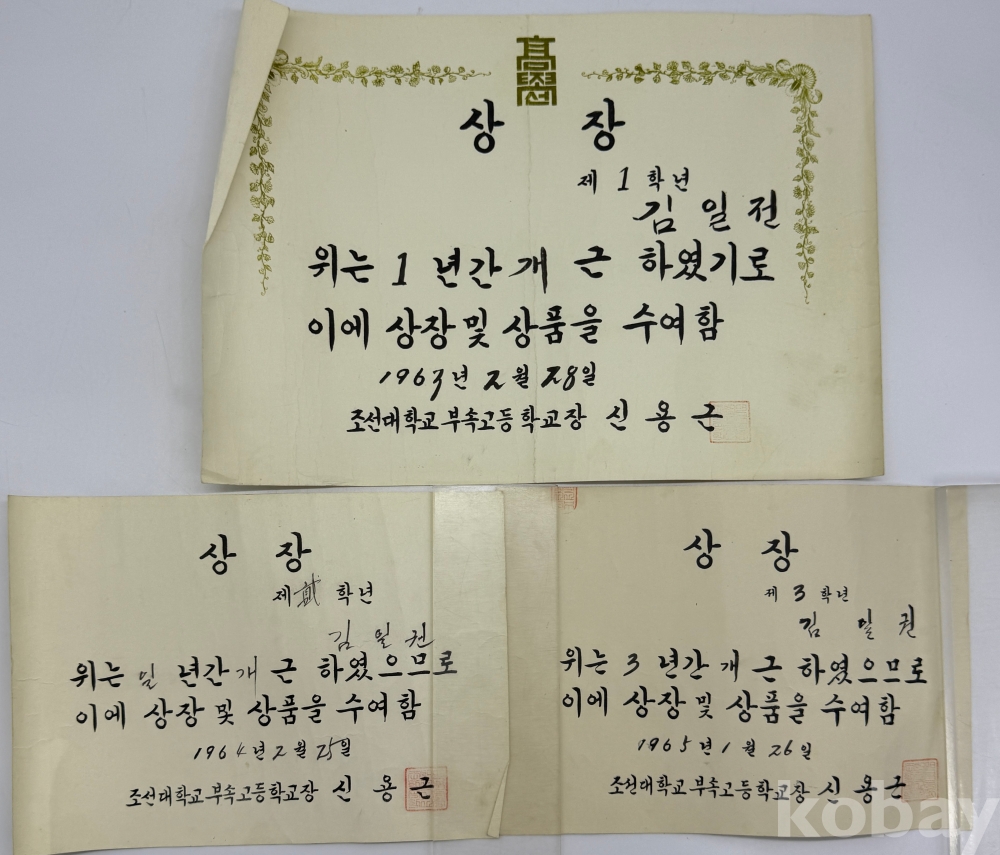 高學
상 장
제 1 학년
김 일 전
위는 1 년간 개 근 하였기로
이에 상장 및 상품을 수여함
1963년 2월 28일
조선대학교 부속고등학교장 신 용 근
상 장
제 貳 학년
김 일 권
위는 일 년간 개 근 하였으므로
이에 상장 및 상품을 수여함
1964년 2월 25일
조선대학교 부속고등학교장 신 용 근
상 장
제 3 학년
김 일 권
위는 3 년간 개 근 하였으므로
이에 상장 및 상품을 수여함
1965년 1월 26일
조선대학교 부속고등학교장 신 용 근
kobay